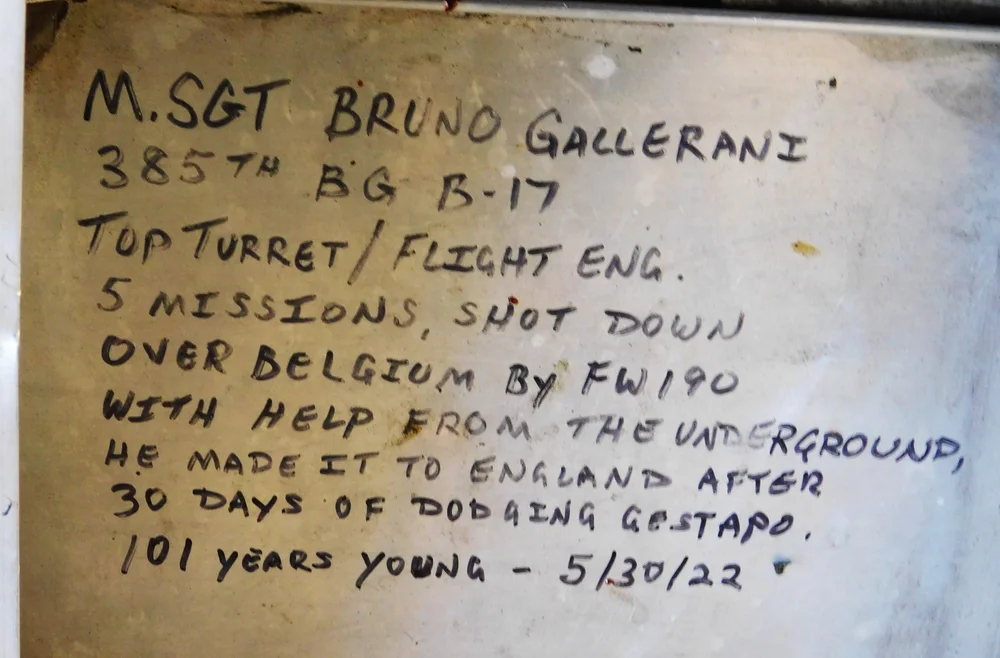 M.SGT BRUNO GALLERANI
385TH BG B-17
TOP TURRET/FLIGHT ENG.
5 MISSIONS, SHOT DOWN
OVER BELGIUM By FW190
WITH HELP FROM THE UNDERGROUND,
HE MADE IT TO ENGLAND AFTER
30 DAYS OF DODGING GESTAPO.
101 YEARS YOUNG - 5/30/22